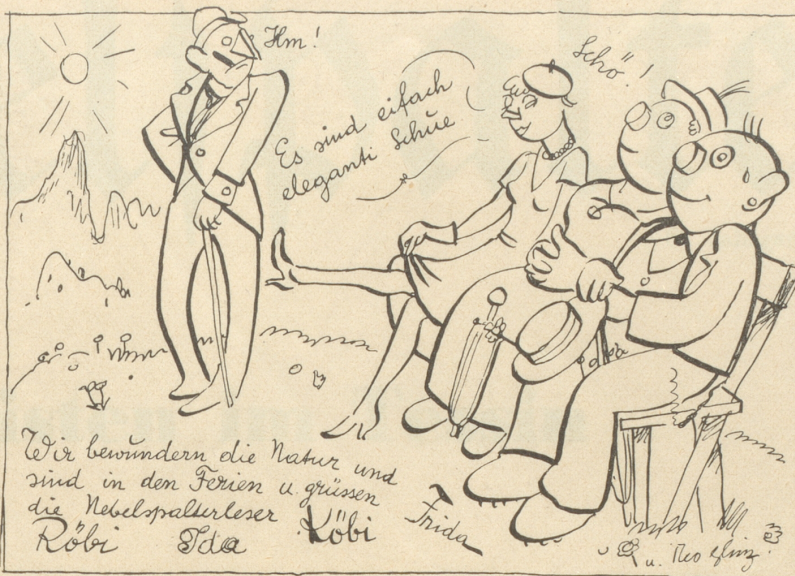 Hm!
Es sind eifach
eleganti Schue
Schö!
Wir bewundern die Natur und
sind in den Ferien u. grüssen
die Nebelspalterleser
Röbi Ida Köbi Frida
u.